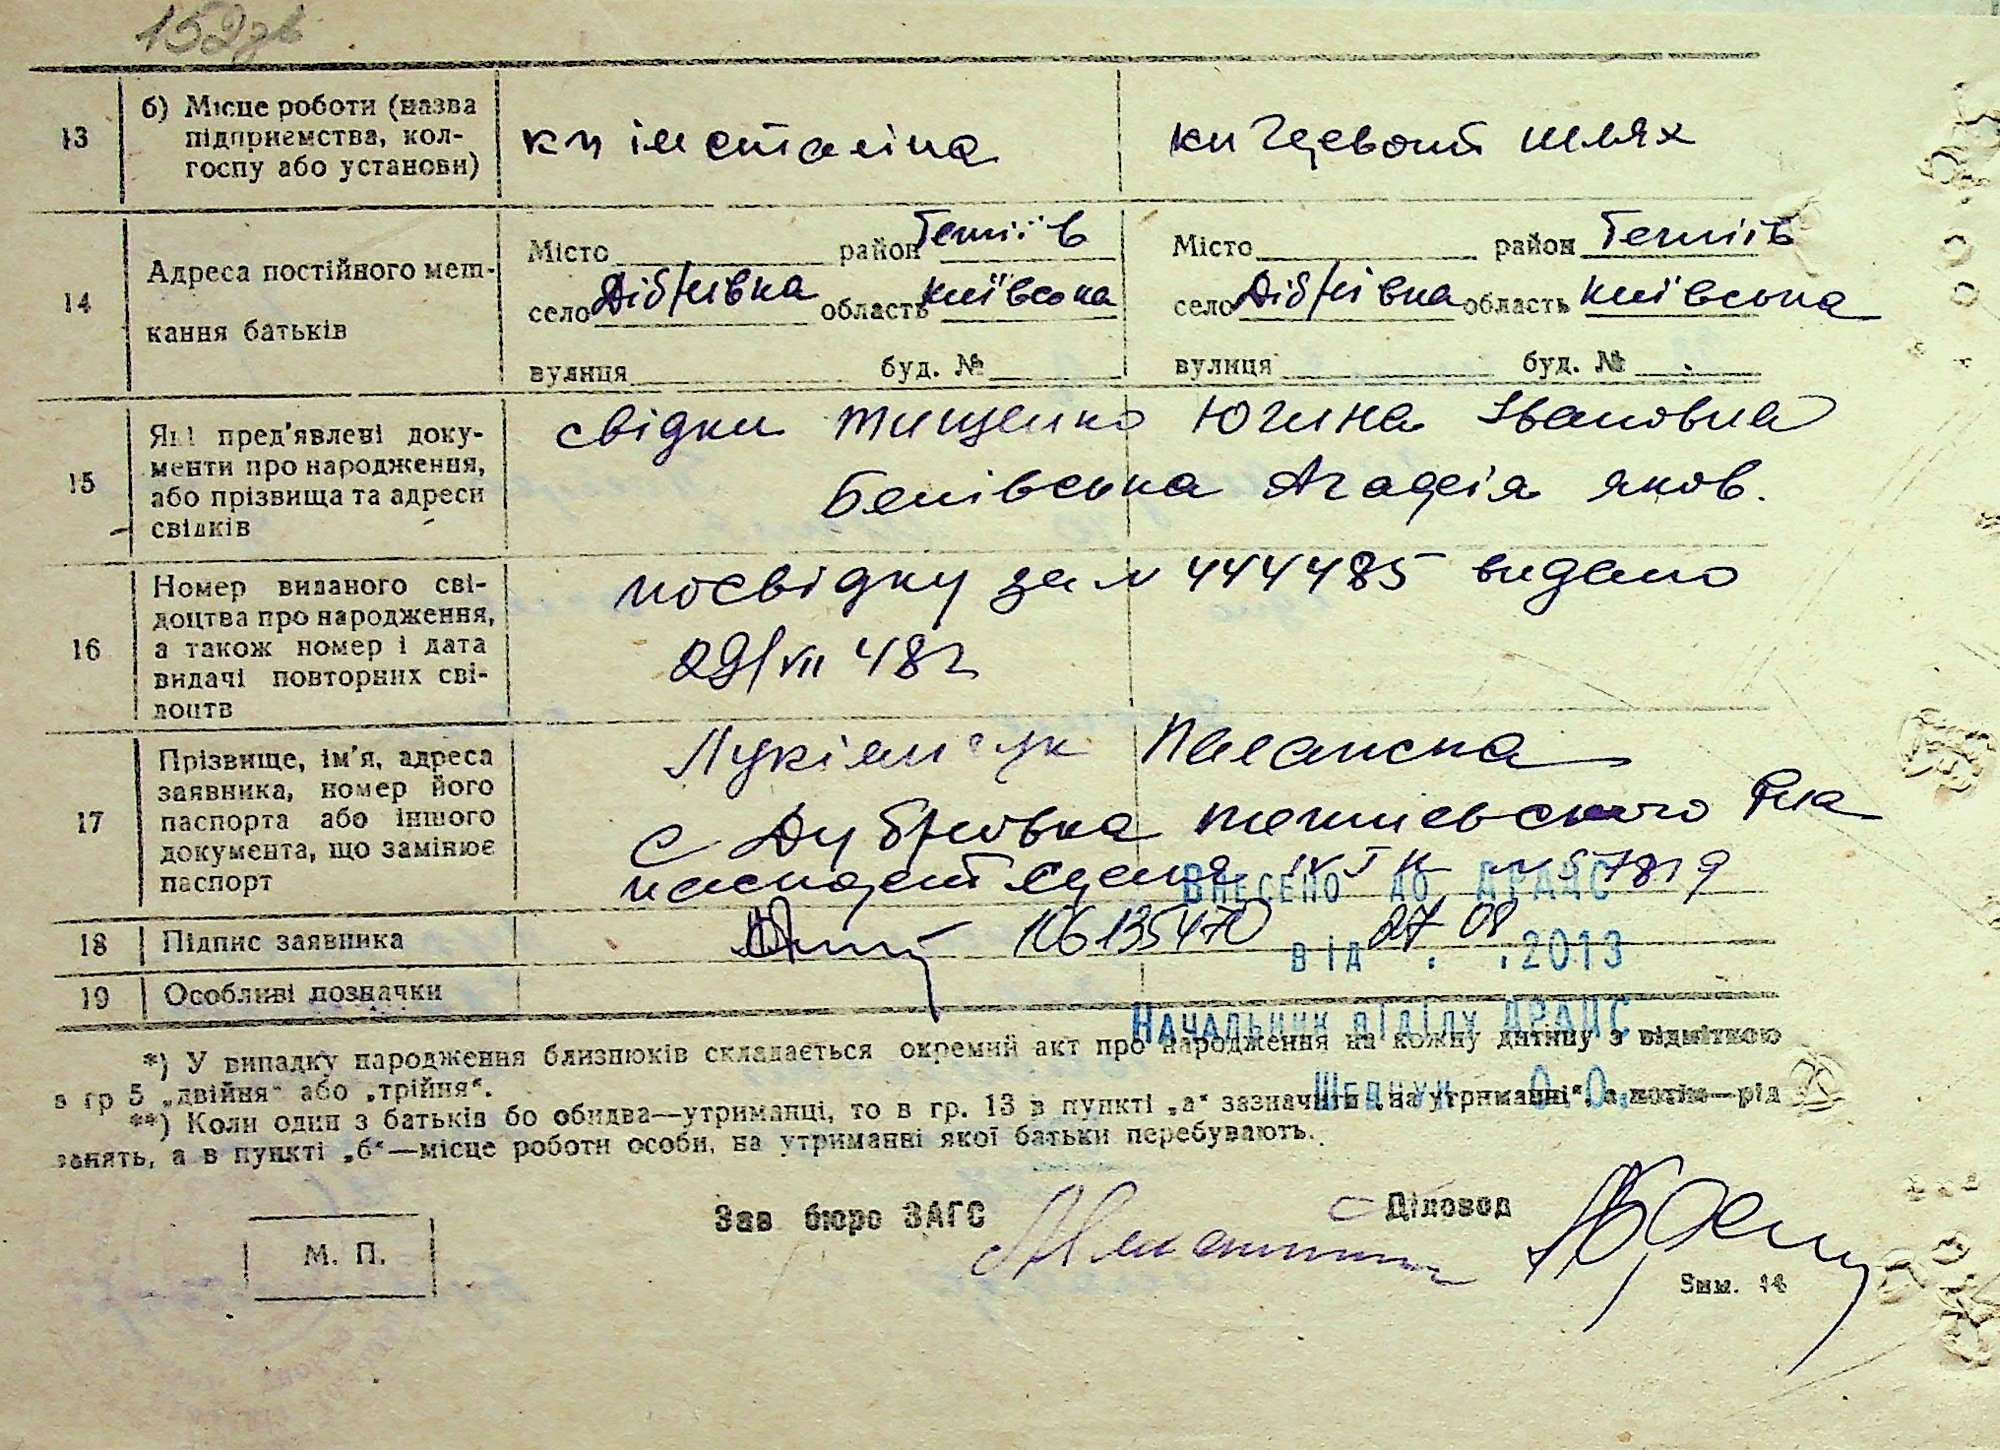 152зв
13 б) Місце роботи (назва підприємства, колгоспу або установи)
кп ім сталіна
кп Червоний шлях
14 Адреса постійного мешкання батьків
Місто район Тетіїв
село Дібрівка область Київська
вулиця буд. №
Місто район Тетіїв
село Дібрівка область Київська
вулиця буд. №
15 Які пред'явлені документи про народження, або прізвища та адреси свідків
свідки Тищенко Югина Івановна
Агафія яков.
16 Номер виданого свідоцтва про народження, а також номер і дата видачі повторних свідоцтв
посвідку за № 444485 видано
29/VII 48 г
17 Прізвище, ім'я, адреса заявника, номер його паспорта або іншого документа, що замінює паспорт
Лукіянчук
с Дубровка тетиевского р-на
паспорт
18 Підпис заявника
106135470 27 08
19 Особливі позначки
Внесено до ДРАЦС
від . .2013
Начальник відділу ДРАЦС
О.О.
*) У випадку народження близнюків складається окремий акт про народження на кожну дитину з відміткою
в гр 5 „двійня" або „трійня".
**) Коли один з батьків бо обидва—утриманці, то в гр. 13 в пункті „а" зазначити „на утриманні", а потім—рід
занять, а в пункті „б"—місце роботи особи, на утриманні якої батьки перебувають.
Зав бюро ЗАГС
Діловод
М. П.
Зам. 14